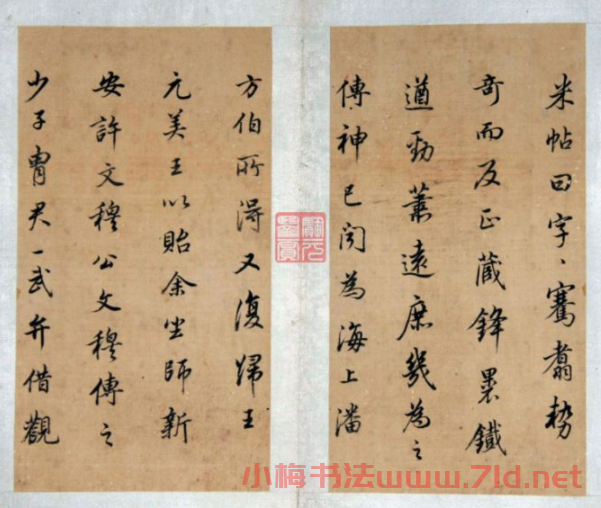 米帖曰字、騫翥勢
奇而反正藏鋒裹鐵
遒勁蕭遠庶幾為之
傳神已聞為海上潘
方伯所得又復歸王
元美王以貽余坐師新
安許文穆公文穆傳之
少子胄君一武弁借觀
小梅书法www.7ld.net